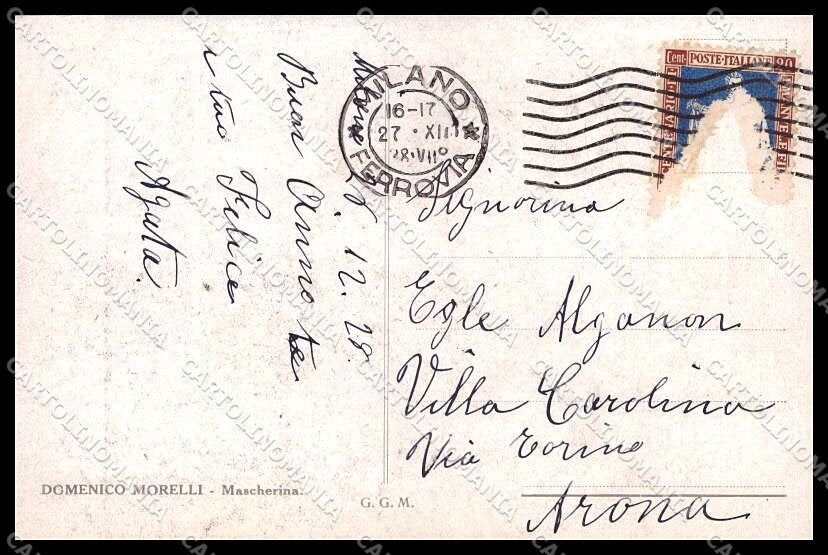 Milano 26.12.28.
Buon Anno te
e tuo Felice
Agata.
MILANO
16-17
27 · XII
28·VII°
★ FERROVIA ★
Cent. POSTE·ITALIANE 20
Signorina
Egle Alganon
Villa Carolina
Via Torino
Arona
DOMENICO MORELLI - Mascherina.
G. G. M.
CARTOLINOMANIA